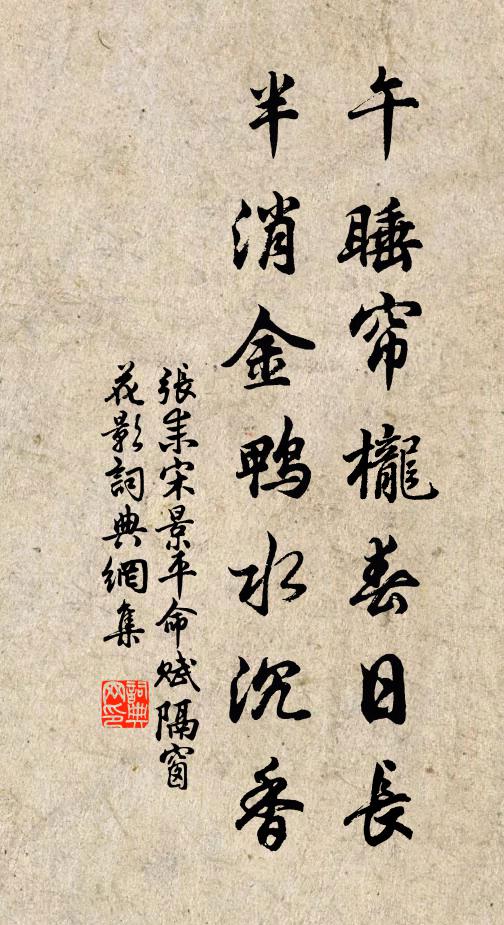 午睡帘櫳春日長
半消金鴨水沉香
張耒宋景平命賦隔窗
花影詞典網集
詞典网印